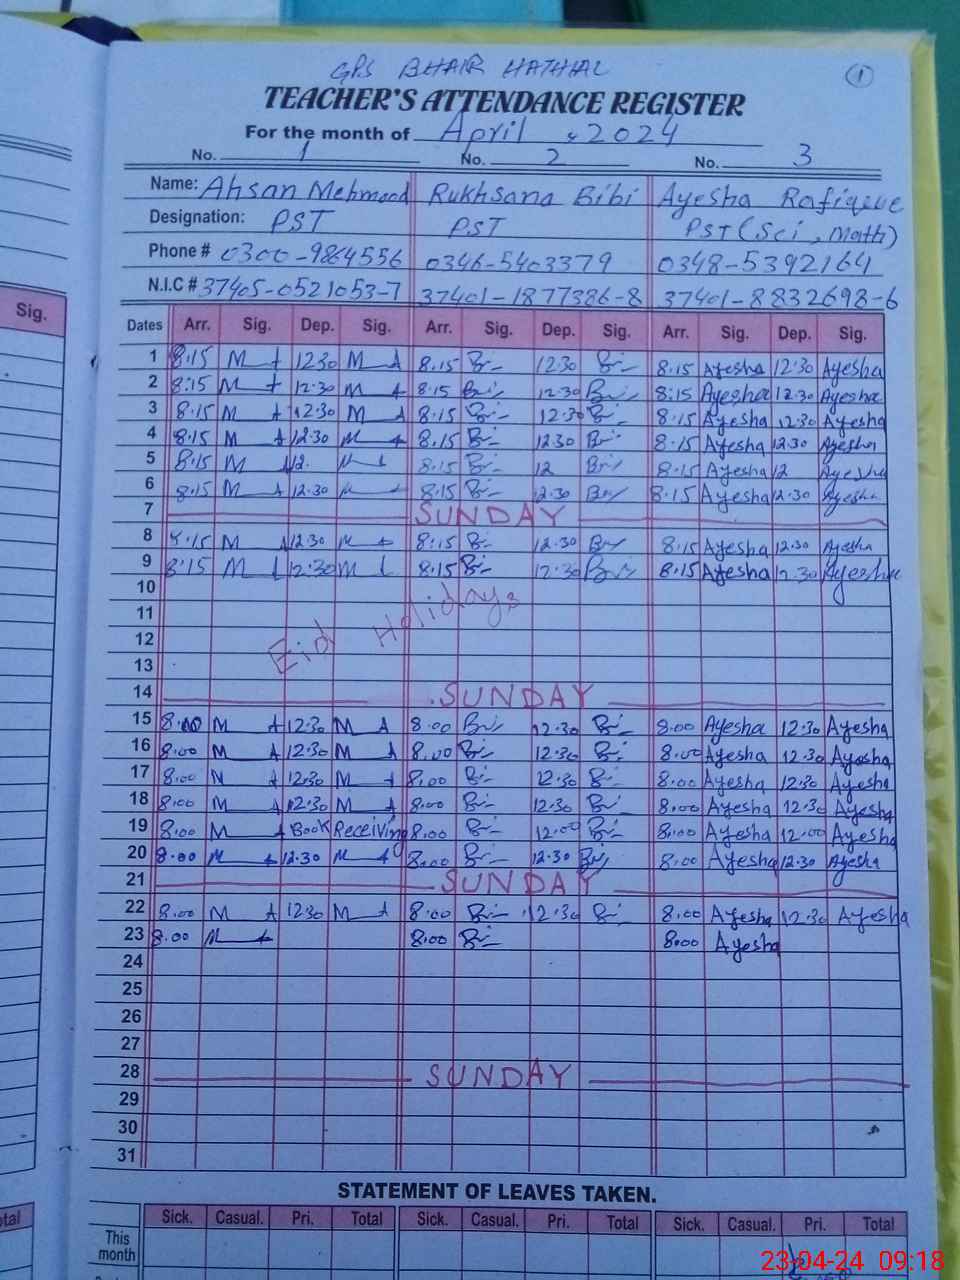 GPS BHAIR HATHIAL
1
TEACHER'S ATTENDANCE REGISTER
For the month of April , 2024
No. 1 No. 2 No. 3
Name: Ahsan Mehmood Rukhsana Bibi Ayesha Rafique
Designation: PST PST PST (Sci, Math)
Phone # 0300-9864556 0346-5403379 0348-5392164
N.I.C # 37405-0521053-7 37401-1877386-8 37401-8832698-6
Sig.
Dates Arr. Sig. Dep. Sig. Arr. Sig. Dep. Sig. Arr. Sig. Dep. Sig.
1 8.15 12.30 8.15 12.30 8.15 Ayesha 12.30 Ayesha
2 8:15 12.30 8.15 12.30 8:15 Ayesha 12.30 Ayesha
3 8.15 12.30 8.15 12.30 8.15 Ayesha 12.30 Ayesha
4 8.15 12.30 8.15 12.30 8.15 Ayesha 12.30 Ayesha
5 8.15 12. 8.15 12 8.15 Ayesha 12 Ayesha
6 8.15 12.30 8.15 12.30 8.15 Ayesha 12.30 Ayesha
7 SUNDAY
8 8.15 12.30 8:15 12.30 8.15 Ayesha 12.30 Ayesha
9 8:15 12.30 8.15 12.30 8.15 Ayesha 12.30 Ayesha
10
11 Eid Holidays
12
13
14 SUNDAY
15 8.00 12.30 8.00 12.30 8.00 Ayesha 12.30 Ayesha
16 8.00 12.30 8.00 12.30 8.00 Ayesha 12.30 Ayesha
17 8.00 12.30 8.00 12.30 8.00 Ayesha 12.30 Ayesha
18 8.00 12.30 8.00 12.30 8.00 Ayesha 12.30 Ayesha
19 8.00 Book Receiving 8.00 12.00 8.00 Ayesha 12.00 Ayesha
20 8.00 12.30 8.00 12.30 8.00 Ayesha 12.30 Ayesha
21 SUNDAY
22 8.00 12.30 8.00 12.30 8.00 Ayesha 12.30 Ayesha
23 8.00 8.00 8.00 Ayesha
24
25
26
27
28 SUNDAY
29
30
31
STATEMENT OF LEAVES TAKEN.
Sick. Casual. Pri. Total Sick. Casual. Pri. Total Sick. Casual. Pri. Total
This
month
23-04-24 09:18